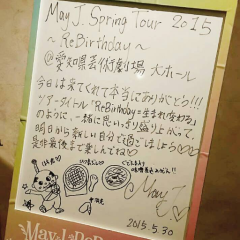 May J. Spring Tour 2015
~ReBirthday~
@愛知県芸術劇場 大ホール
今日は来てくれて本当にありがとう!!!
ツアータイトル「ReBirthday=生まれ変わる」
のように、一緒に思いっきり盛り上がって、
明日から新しい自分で過ごしましょう♡
是非最後まで楽しんでね♡
May J.
2015.5.30
May J. ReB